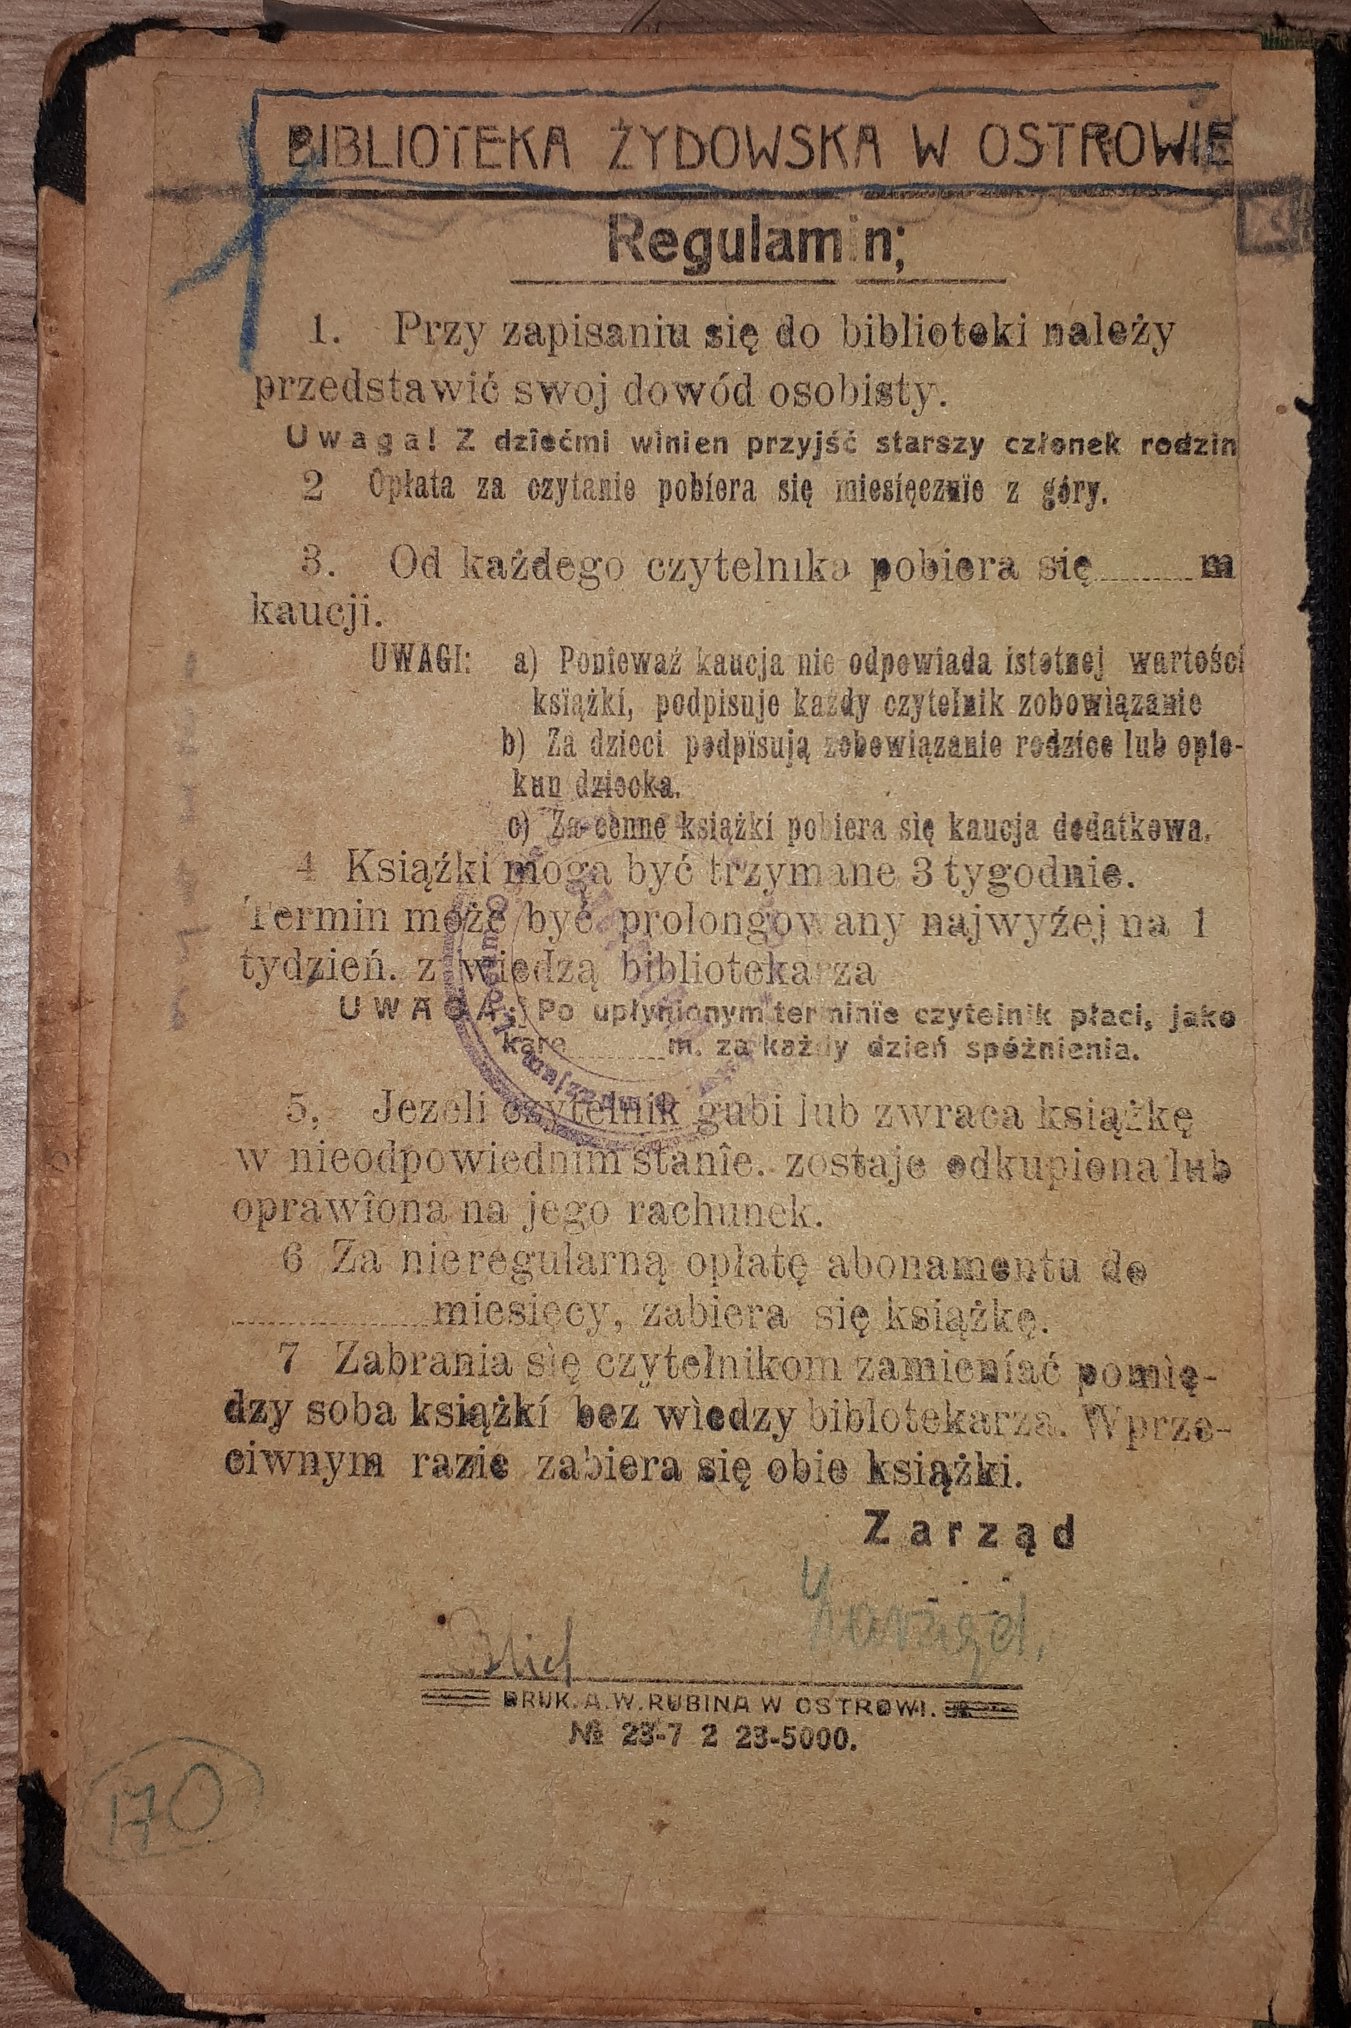 BIBLIOTEKA ŻYDOWSKA W OSTROWIE
Regulamin;
1. Przy zapisaniu się do biblioteki należy
przedstawić swoj dowód osobisty.
Uwaga! Z dziećmi winien przyjść starszy członek rodzin
2 Opłata za czytanie pobiera się miesięcznie z góry.
3. Od każdego czytelnika pobiera się..........m
kaucji.
UWAGI: a) Ponieważ kaucja nie odpowiada istotnej wartości
książki, podpisuje każdy czytelnik zobowiązanie
b) Za dzieci podpisują zobowiązanie rodzice lub opie-
kun dziecka.
c) Za cenne książki pobiera się kaucja dodatkowa.
4 Książki moga być trzymane 3 tygodnie.
Termin może być prolongowany najwyźej na 1
tydzień. z wiedzą bibliotekarza
UWAGA: Po upłynionym terminie czytelnik płaci, jako
kare..........m. za każdy dzień spóżnienia.
5, Jezeli czytelnik gubi lub zwraca książkę
w nieodpowiednim stanie. zostaje odkupiona lub
oprawiona na jego rachunek.
6 Za nieregularną opłatę abonamentu do
....................miesięcy, zabiera się książkę.
7 Zabrania się czytelnikom zamieniać pomię-
dzy soba książki bez wiedzy biblotekarza. W prze-
ciwnym razie zabiera się obie książki.
Zarząd
DRUK. A. W. RUBINA W OSTROWI.
№ 23-7 2 23-5000.
170